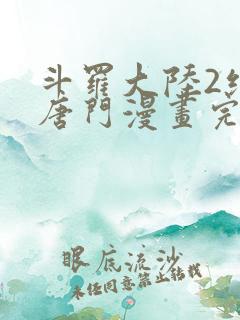 斗羅大陸2
唐門漫畫完
眼底流沙
未经同意禁止转载